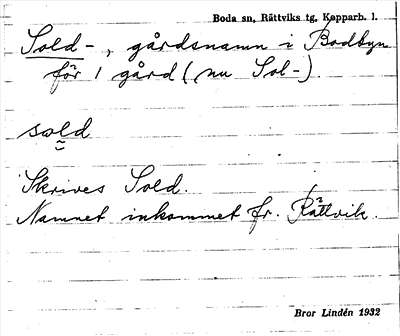 Boda sn, Rättviks tg, Kopparb. l.
Sold-, gårdsnamn i Bodbyn
för 1 gård (nu Sol-).
sold
Skrives Sold.
Namnet inkommet fr. Rättvik.
Bror Lindén 1932